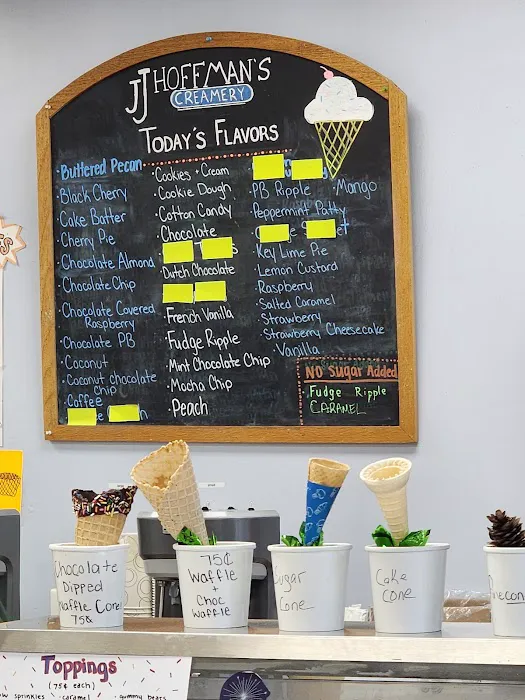 JJ HOFFMAN'S
CREAMERY
TODAY'S FLAVORS
·Buttered Pecan
·Black Cherry
·Cake Batter
·Cherry Pie
·Chocolate Almond
·Chocolate Chip
·Chocolate Covered
Raspberry
·Chocolate PB
·Coconut
·Coconut chocolate
chip
·Coffee
·Cookies + Cream
·Cookie Dough
·Cotton Candy
·Chocolate
·Dutch Chocolate
·French Vanilla
·Fudge Ripple
·Mint Chocolate Chip
·Mocha Chip
·Peach
·PB Ripple ·Mango
·Peppermint Patty
·Key Lime Pie
·Lemon Custard
·Raspberry
·Salted Caramel
·Strawberry
·Strawberry Cheesecake
·Vanilla
NO Sugar Added
Fudge Ripple
CARAMEL
Chocolate
Dipped
Waffle Cone
75¢
75¢
Waffle
+
Choc
Waffle
Sugar
Cone
Cake
cone
Toppings
(75¢ each)
sprinkles ·caramel ·gummy bears